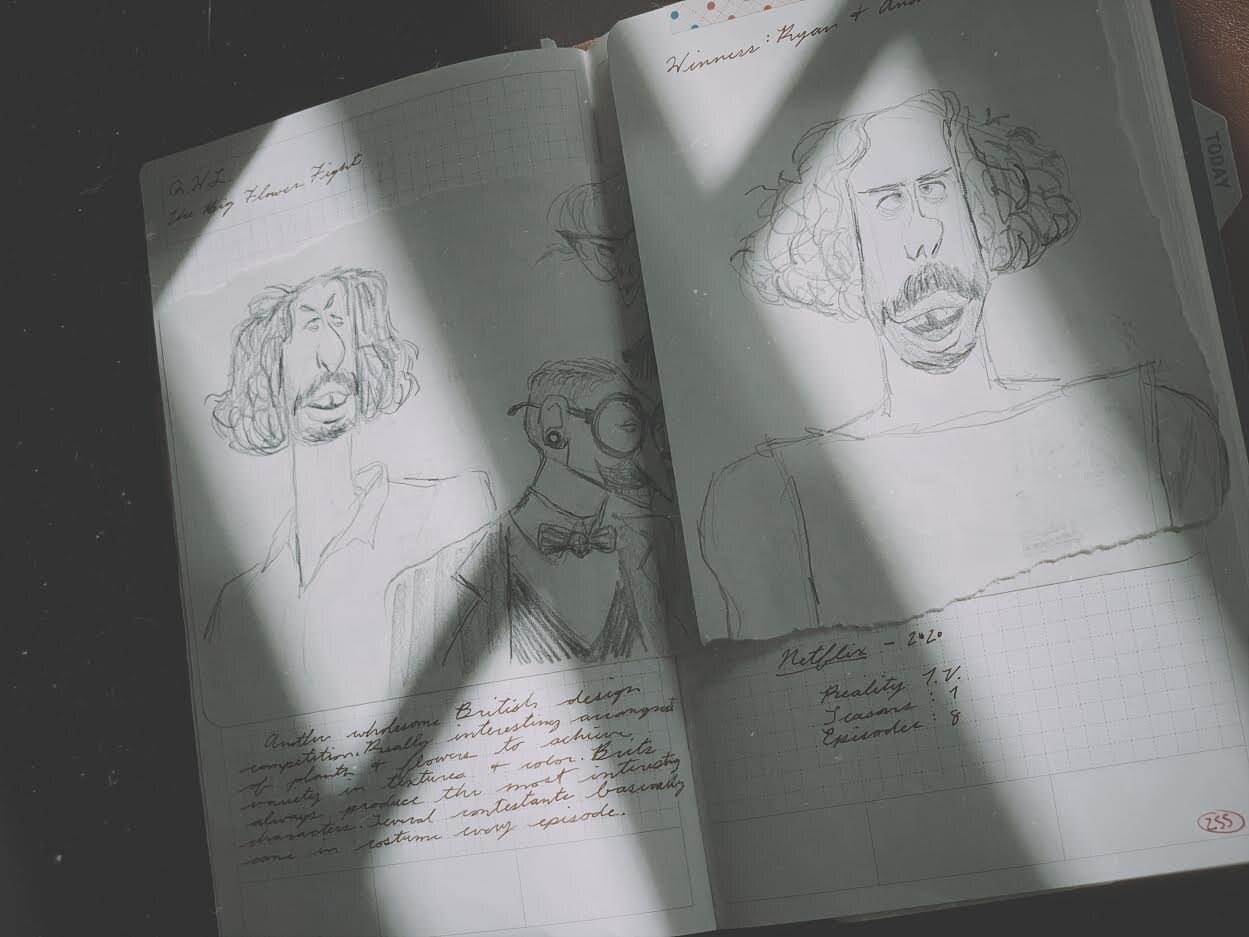 Q.W.L.
The Big Flower Fight
Another wholesome British design
competition. Really interesting arrangment
of plants & flowers to achieve
variety in textures & color. Brits
always produce the most interesting
characters. Several contestants basically
come in costume every episode.
Winners: Ryan & And
Netflix - 2020
Reality T.V.
Seasons: 1
Episodes: 8
255
TODAY